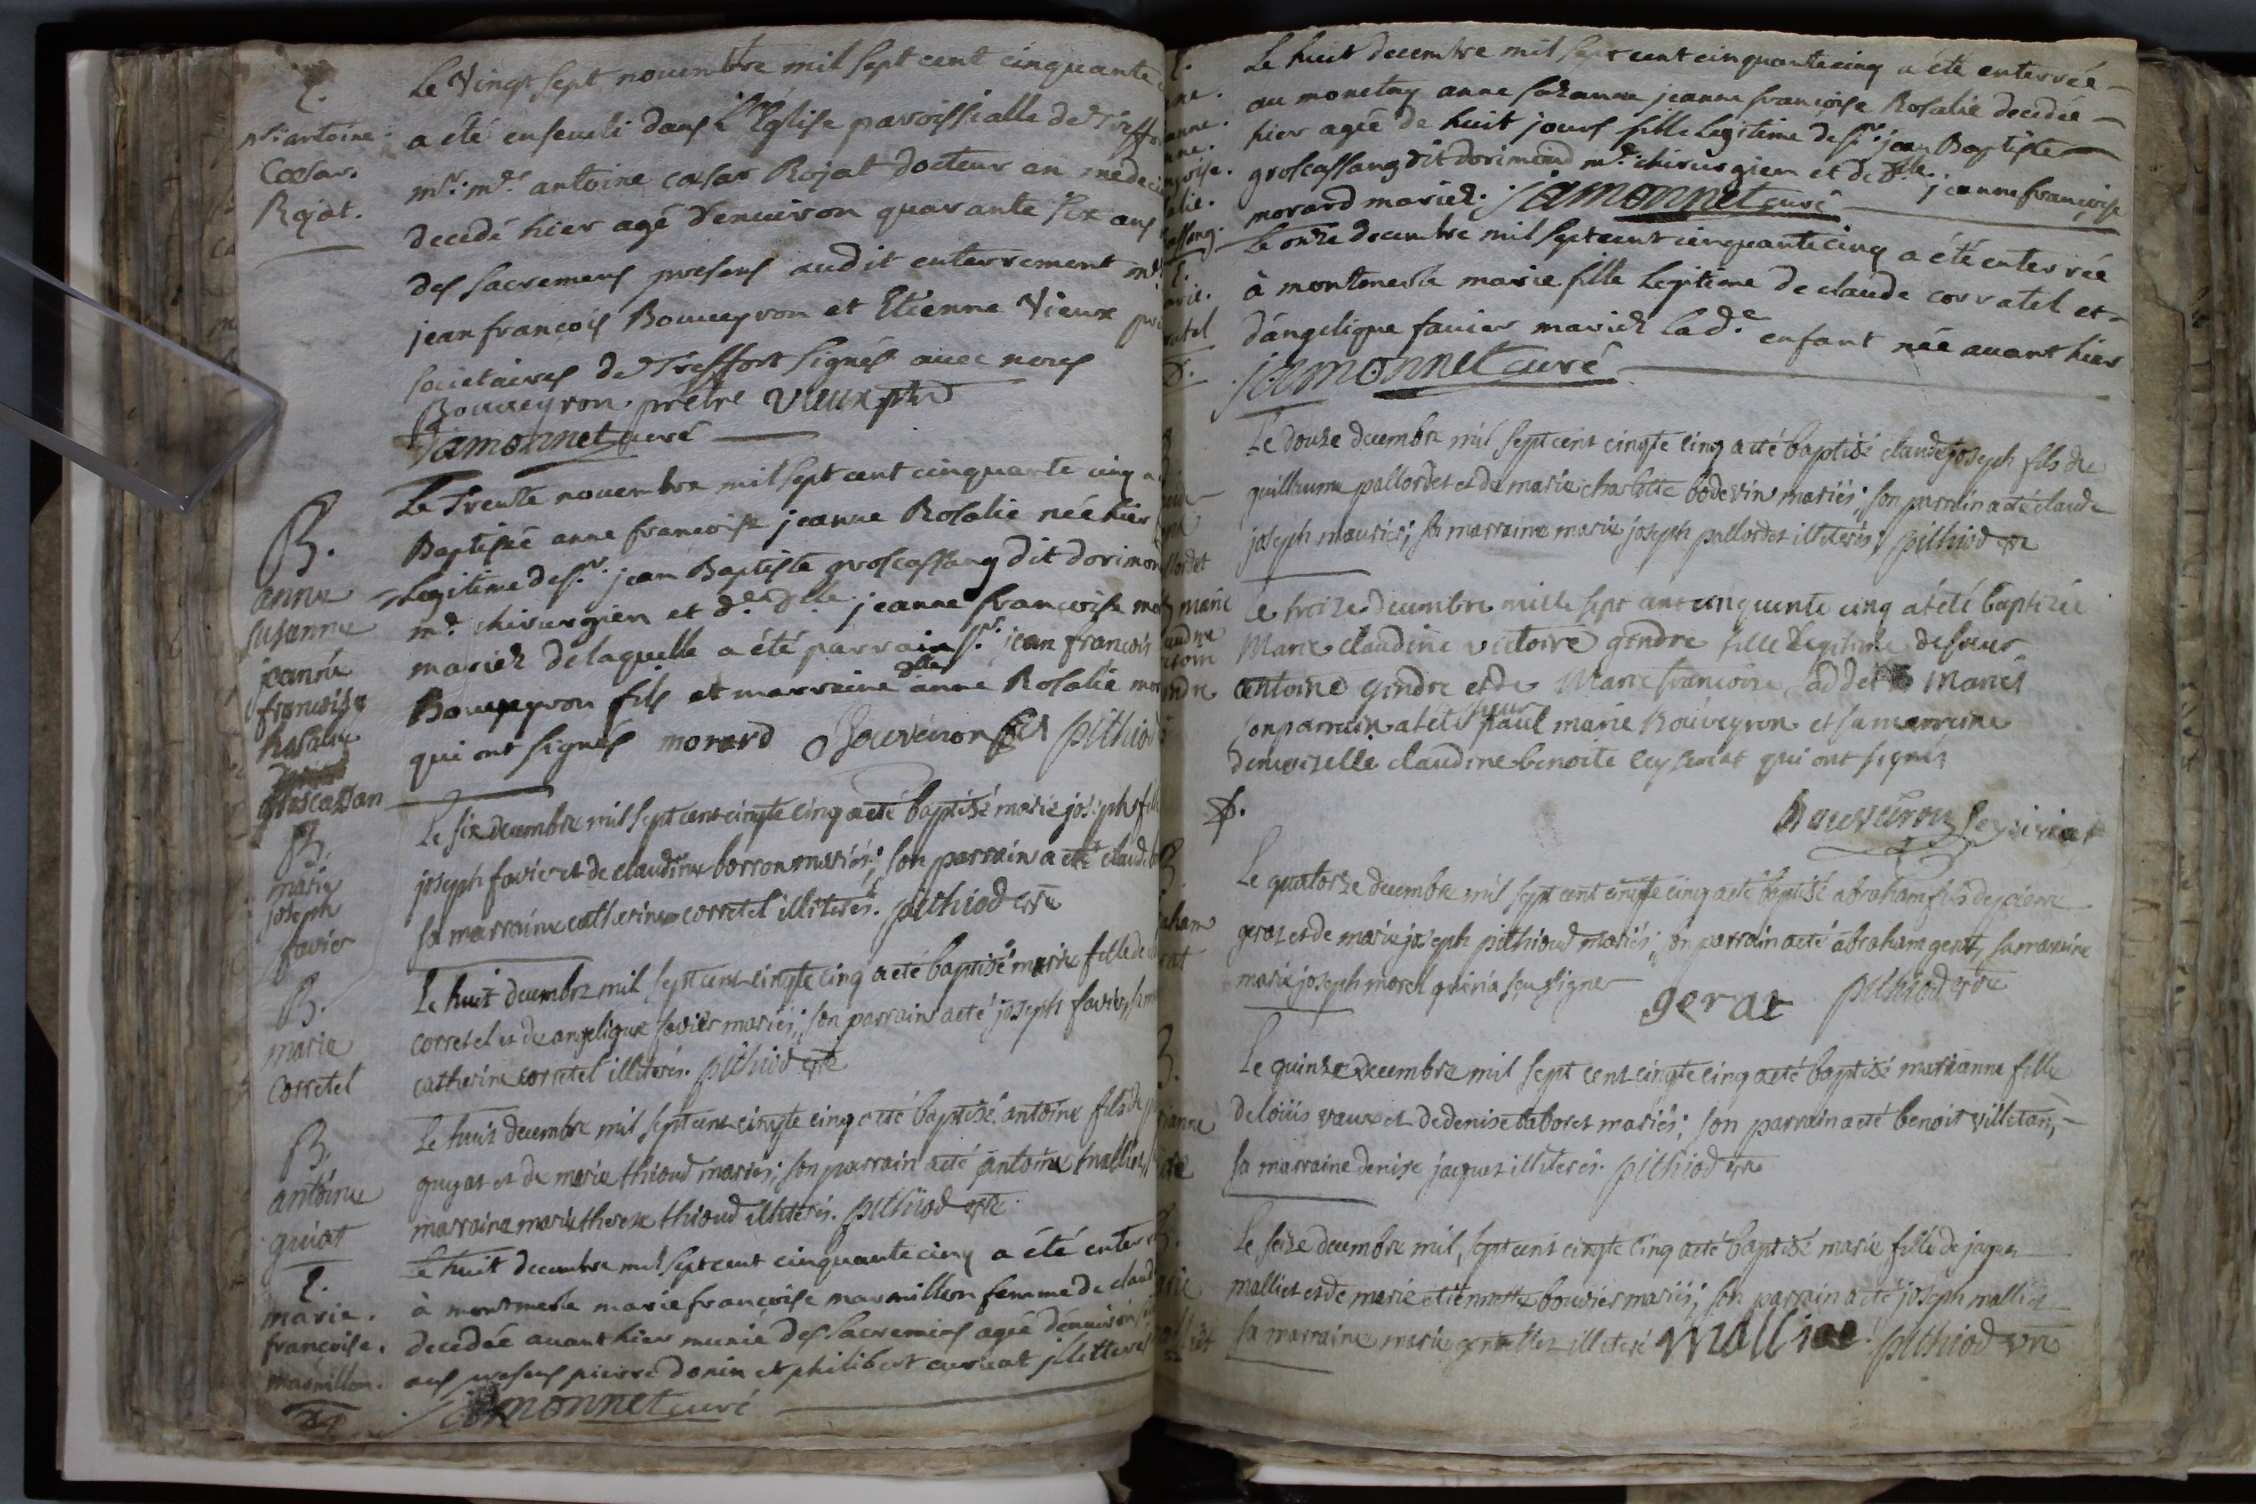 Le Vingt sept novembre mil sept cent cinquante
a été enseveli dans l'Eglise paroissialle de Treffort
mr. me. antoine cæsar Rojat docteur en medecin
decedé hier agé d'environ quarante six ans
des sacremens presens audit enterrement mr.
jean françois Bouveyron et Etienne Vieux
societaires de Treffort signés avec nous
Bouveyron prêtre Vieux ptre
Jamonnet curé
E.
mr. antoine
Cæsar
Rojat.
Le Trente novembre mil sept cent cinquante cinq a
Baptisée anne françoise jeanne Rosalie née hier
Legitime de sr. jean Baptiste groscassang dit dorimon
me. chirurgien et de dlle. jeanne françoise mo
mariez de laquelle a été parrain sr. jean françois
Bouveyron fils et marraine dlle anne Rosalie mor
qui ont signés morard Bouveiron fils pithiod
B.
anne
susanne
jeanne
françoise
Rosalie
groscassan
Le six decembre mil sept cent cinqte cinq a eté baptisé marie joseph fille
joseph favier et de claudine borron mariés; son parrain a eté claude
sa marraine catherine corretel illiterés. pithiod vre
B.
marie
joseph
favier
Le huit decembre mil sept cent cinqte cinq a eté baptisé marie fille de
corretel et de angelique favier mariés; son parrain a eté joseph favier, sa
catherine corretel illiterés. pithiod vre
B.
marie
corretel
Le huit decembre mil sept cent cinqte cinq a eté baptisé antoine fils de
guyat et de marie thioud mariés; son parrain a eté antoine malliet,
marraine marie therese thioud illiterés. pithiod vre
B.
antoine
guiat
Le huit decembre mil sept cent cinquante cinq a été enter
à montmerle marie françoise marmillon femme de claud
decedée avant hier munie des sacremens agée d'environ
ans presens pierre donin et philibert curvat illetterés
Jamonnet curé
E.
marie.
françoise.
marmillon.
Le huit decembre mil sept cent cinquante cinq a été enterrée
au monetay anne sazanne jeanne françoise Rosalie decedée
hier agée de huit jours fille legitime de sr. jean Baptiste
groscassang dit dorimond me. chirurgien et de dlle. jeanne françoise
morard mariez. Jamonnet curé
Le onze decembre mil sept cent cinquante cinq a été enterrée
à montmerle marie fille legitime de claude corratel et
d'angelique favier mariez lade. enfant née avant hier
Jamonnet curé
Le douze decembre mil sept cent cinqte cinq a eté baptisé claude joseph fils de
guillaume pallordet et de marie charlotte bodevin mariés; son parrain a eté claude
joseph maurier; sa marraine marie joseph pallordet illiterés. pithiod vre
Le treize decembre mille sept cent cinquente cinq a été baptizée
Marie claudine victoire gindre fille legitime de sieur
antoine gindre et de Marie françoise mariés
son parrain a été sieur paul marie Bouveyron et sa marreine
demoizelle claudine benoite leyssiriat qui ont signés
Bouveiron leyssiriat
Le quatorze decembre mil sept cent cinqte cinq a eté baptisé abraham fils de pierre
gerat et de marie joseph pithioud mariés; son parrain a eté abraham gerat, sa marraine
marie joseph morel qui n'a sçu signer
gerat pithiod vre
Le quinze decembre mil sept cent cinqte cinq a eté baptisé marianne fille
de loüis vaux et de denise laboret mariés; son parrain a eté benoit villetan,
sa marraine denise jaquet illiterés. pithiod vre
Le seize decembre mil sept cent cinqte cinq a eté baptisé marie fille de jaques
malliet et de marie etiennette bouvier mariés; son parrain a eté joseph malliet
sa marraine marie illiteré malliet pithiod vre